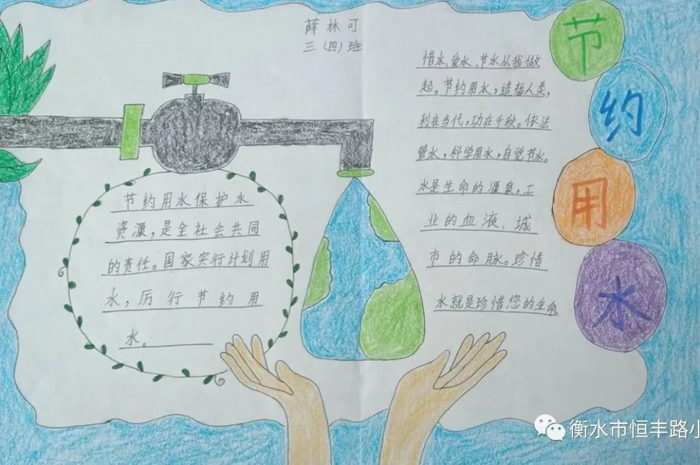 薛林可
三（四）班
节
约
用
水
节约用水保护水
资源，是全社会共同
的责任。国家实行计划用
水，厉行节约用
水。
惜水、爱水、节水从我做
起。节约用水，造福人类，
利在当代，功在千秋。依法
管水，科学用水，自觉节水。
水是生命的源泉、工
业的血液、城
市的命脉。珍惜
水就是珍惜您的生命
衡水市恒丰路小